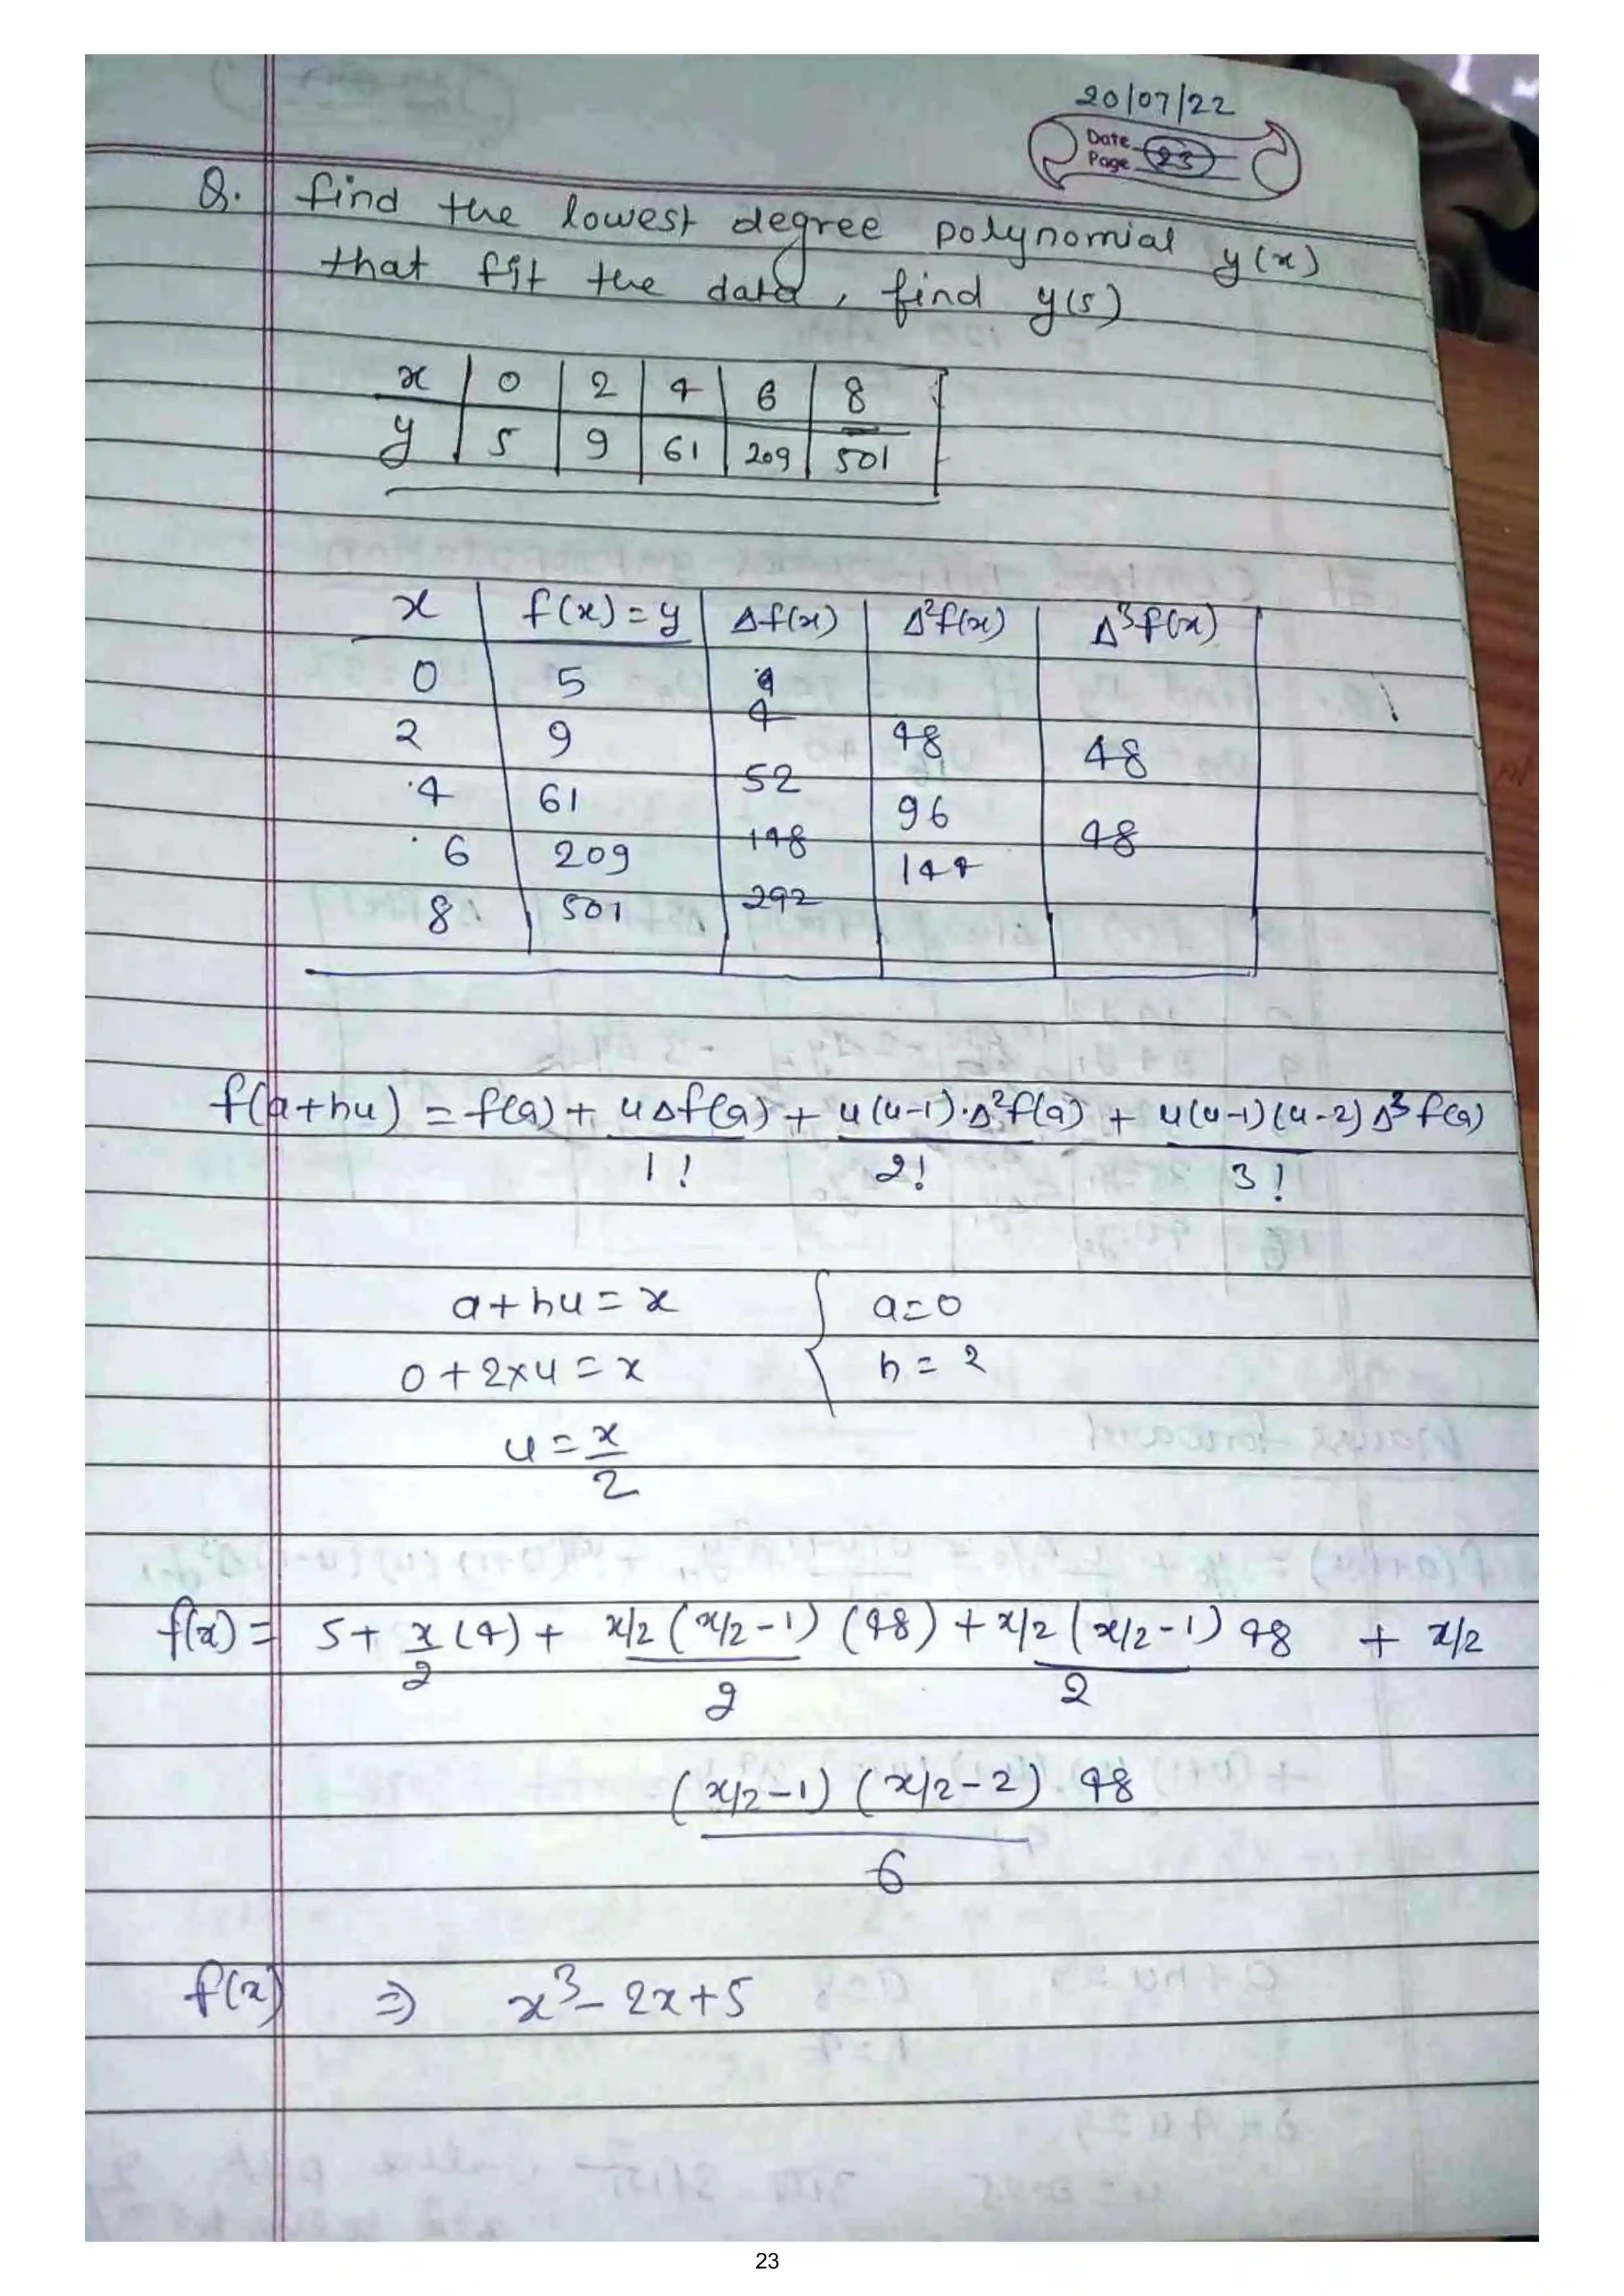 20/07/22
Date
Page 23
Q. find the lowest degree polynomial y(x)
that fit the data, find y(5)
x | 0 | 2 | 4 | 6 | 8
y | 5 | 9 | 61 | 209 | 501
x | f(x)=y | Δf(x) | Δ²f(x) | Δ³f(x)
0 5
4
2 9 48 48
52
4 61 96
148 48
6 209 144
292
8 501
f(a+hu) = f(a) + uΔf(a)/1! + u(u-1)·Δ²f(a)/2! + u(u-1)(u-2)Δ³f(a)/3!
a+hu=x { a=0
0+2×u=x h=2
u=x/2
f(x)= 5+ x/2 (4) + x/2 (x/2-1)/2 (48) + x/2 (x/2-1)/2 48 + x/2
(x/2-1) (x/2-2)·48/6
f(x) ⇒ x³-2x+5
23